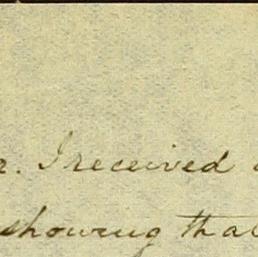 r. I received
showing that